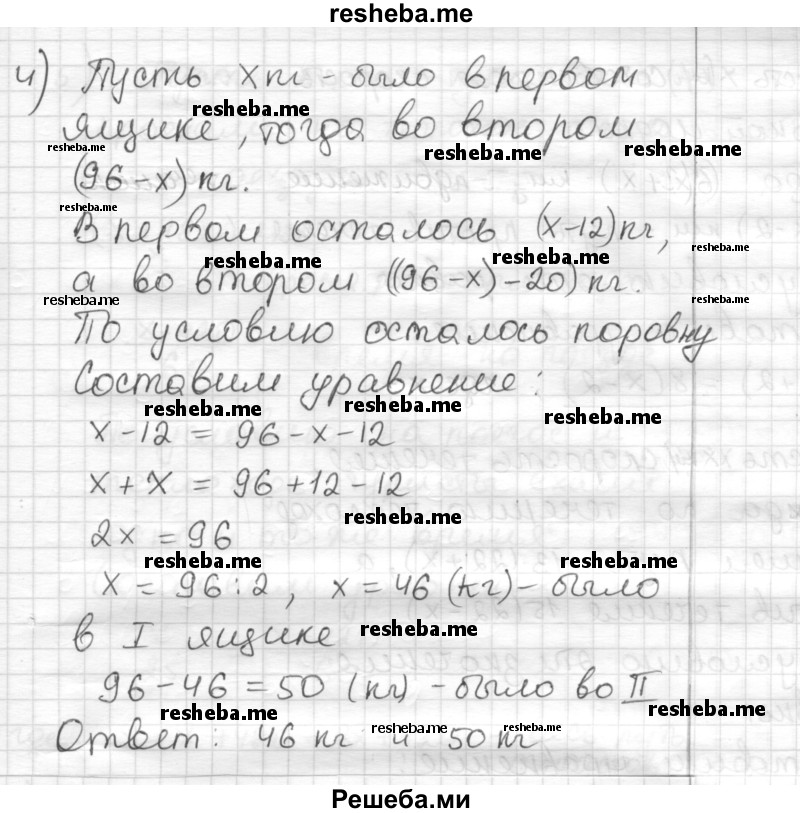 resheba.me
4) Пусть x кг - было в первом
resheba.me
ящике, тогда во втором
resheba.me resheba.me resheba.me
(96-x) кг.
resheba.me
В первом осталось (x-12) кг,
resheba.me resheba.me resheba.me
а во втором ((96-x)-20) кг.
resheba.me resheba.me
По условию осталось поровну
Составим уравнение:
resheba.me resheba.me resheba.me
x-12 = 96-x-12
x+x = 96+12-12
resheba.me
2x = 96
resheba.me resheba.me
x = 96:2, x = 46 (кг) - было
в I ящике
resheba.me
96-46=50 (кг) - было во II
resheba.me resheba.me
Ответ: 46 кг и 50 кг
resheba.me resheba.me
Решеба.ми